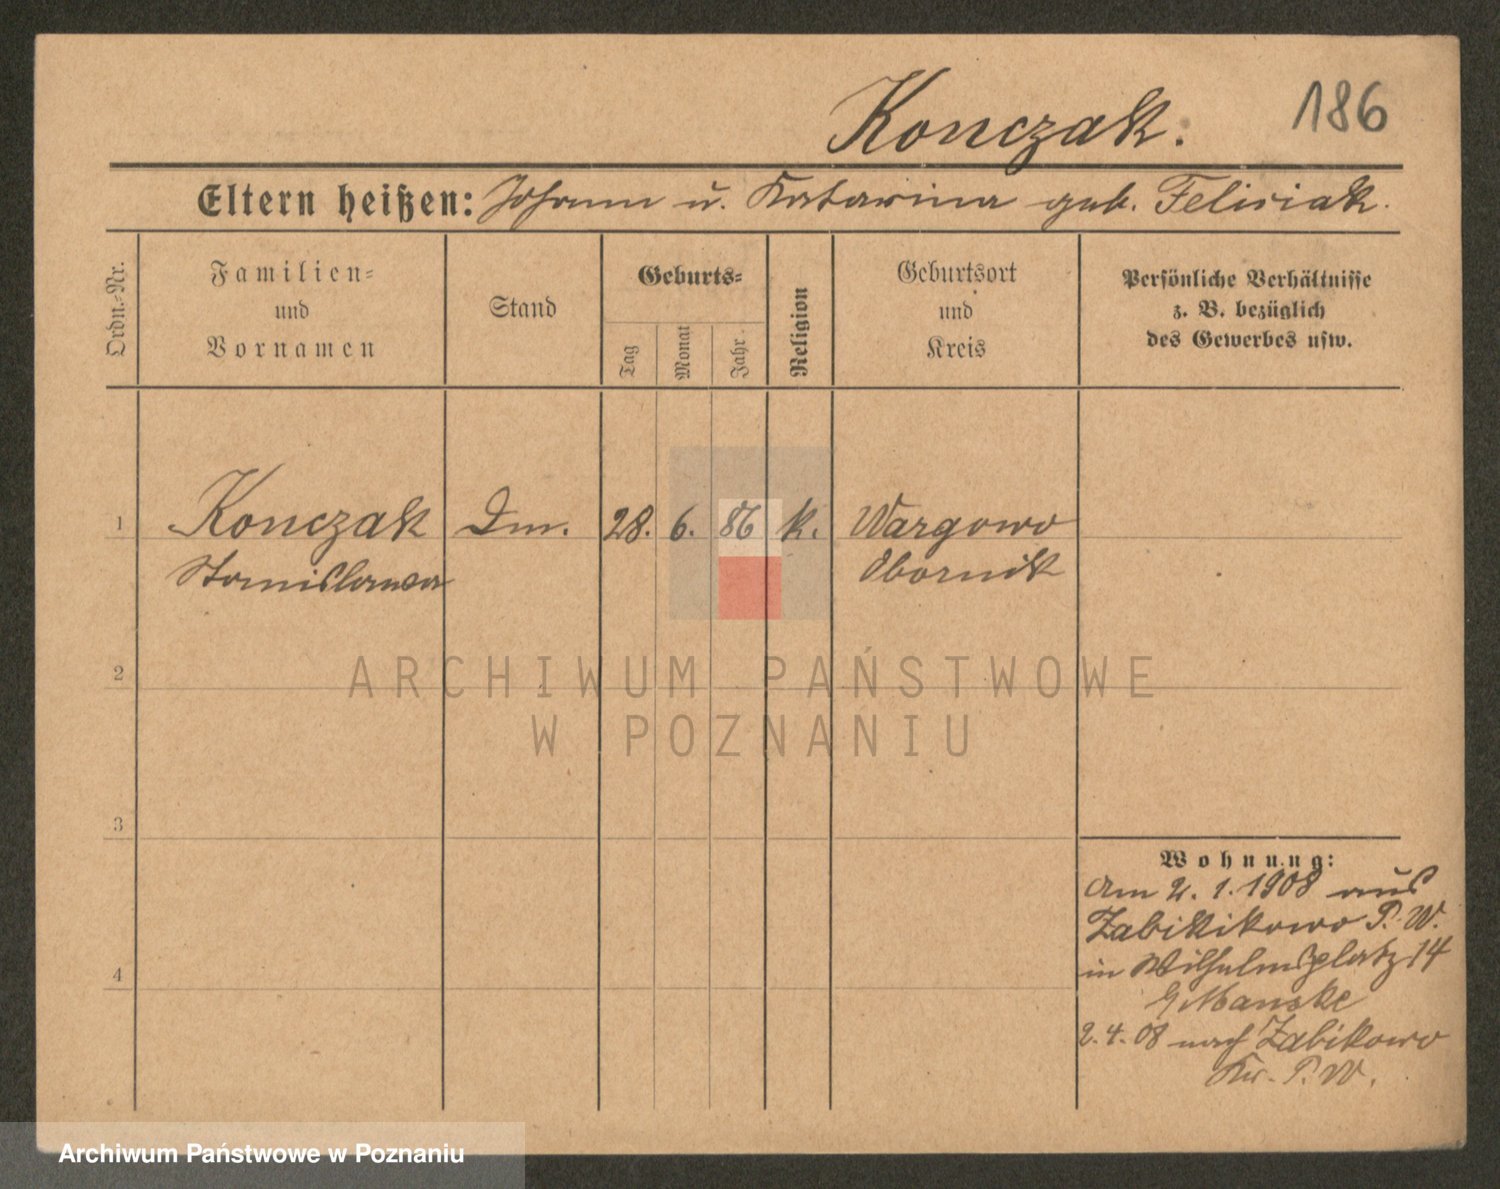 Konczak. 186
Eltern heißen: Johann u. Katarina geb. Felisiak.
Ordn.-Nr.
Familien-
und
Vornamen
Stand
Geburts-
Tag
Monat
Jahr.
Religion
Geburtsort
und
Kreis
Persönliche Verhältnisse
z. B. bezüglich
des Gewerbes usw.
1 Konczak Dm. 28. 6. 86 k. Wargowo
Stanislawa Obornik
2
ARCHIWUM PAŃSTWOWE
W POZNANIU
3
Wohnung:
Am 2. 1. 1908 aus
Zabikikowo P. W.
in Wilhelmsplatz 14
Manske
4
2. 4. 08 nach Zabikowo
Kr. P. W.
Archiwum Państwowe w Poznaniu